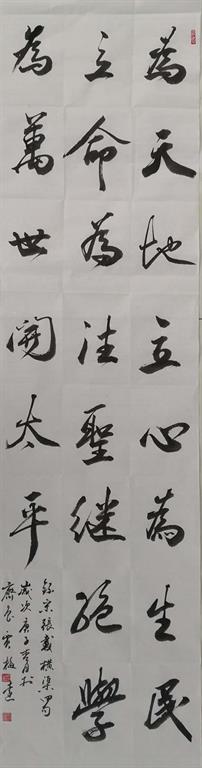 為天地立心為生民
立命為往聖継絕學
為萬世開太平
錄宋張載橫渠四句
歲次庚子